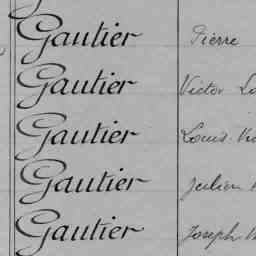 Gautier Pierre
Gautier Victor
Gautier Louis
Gautier Julien
Gautier Joseph